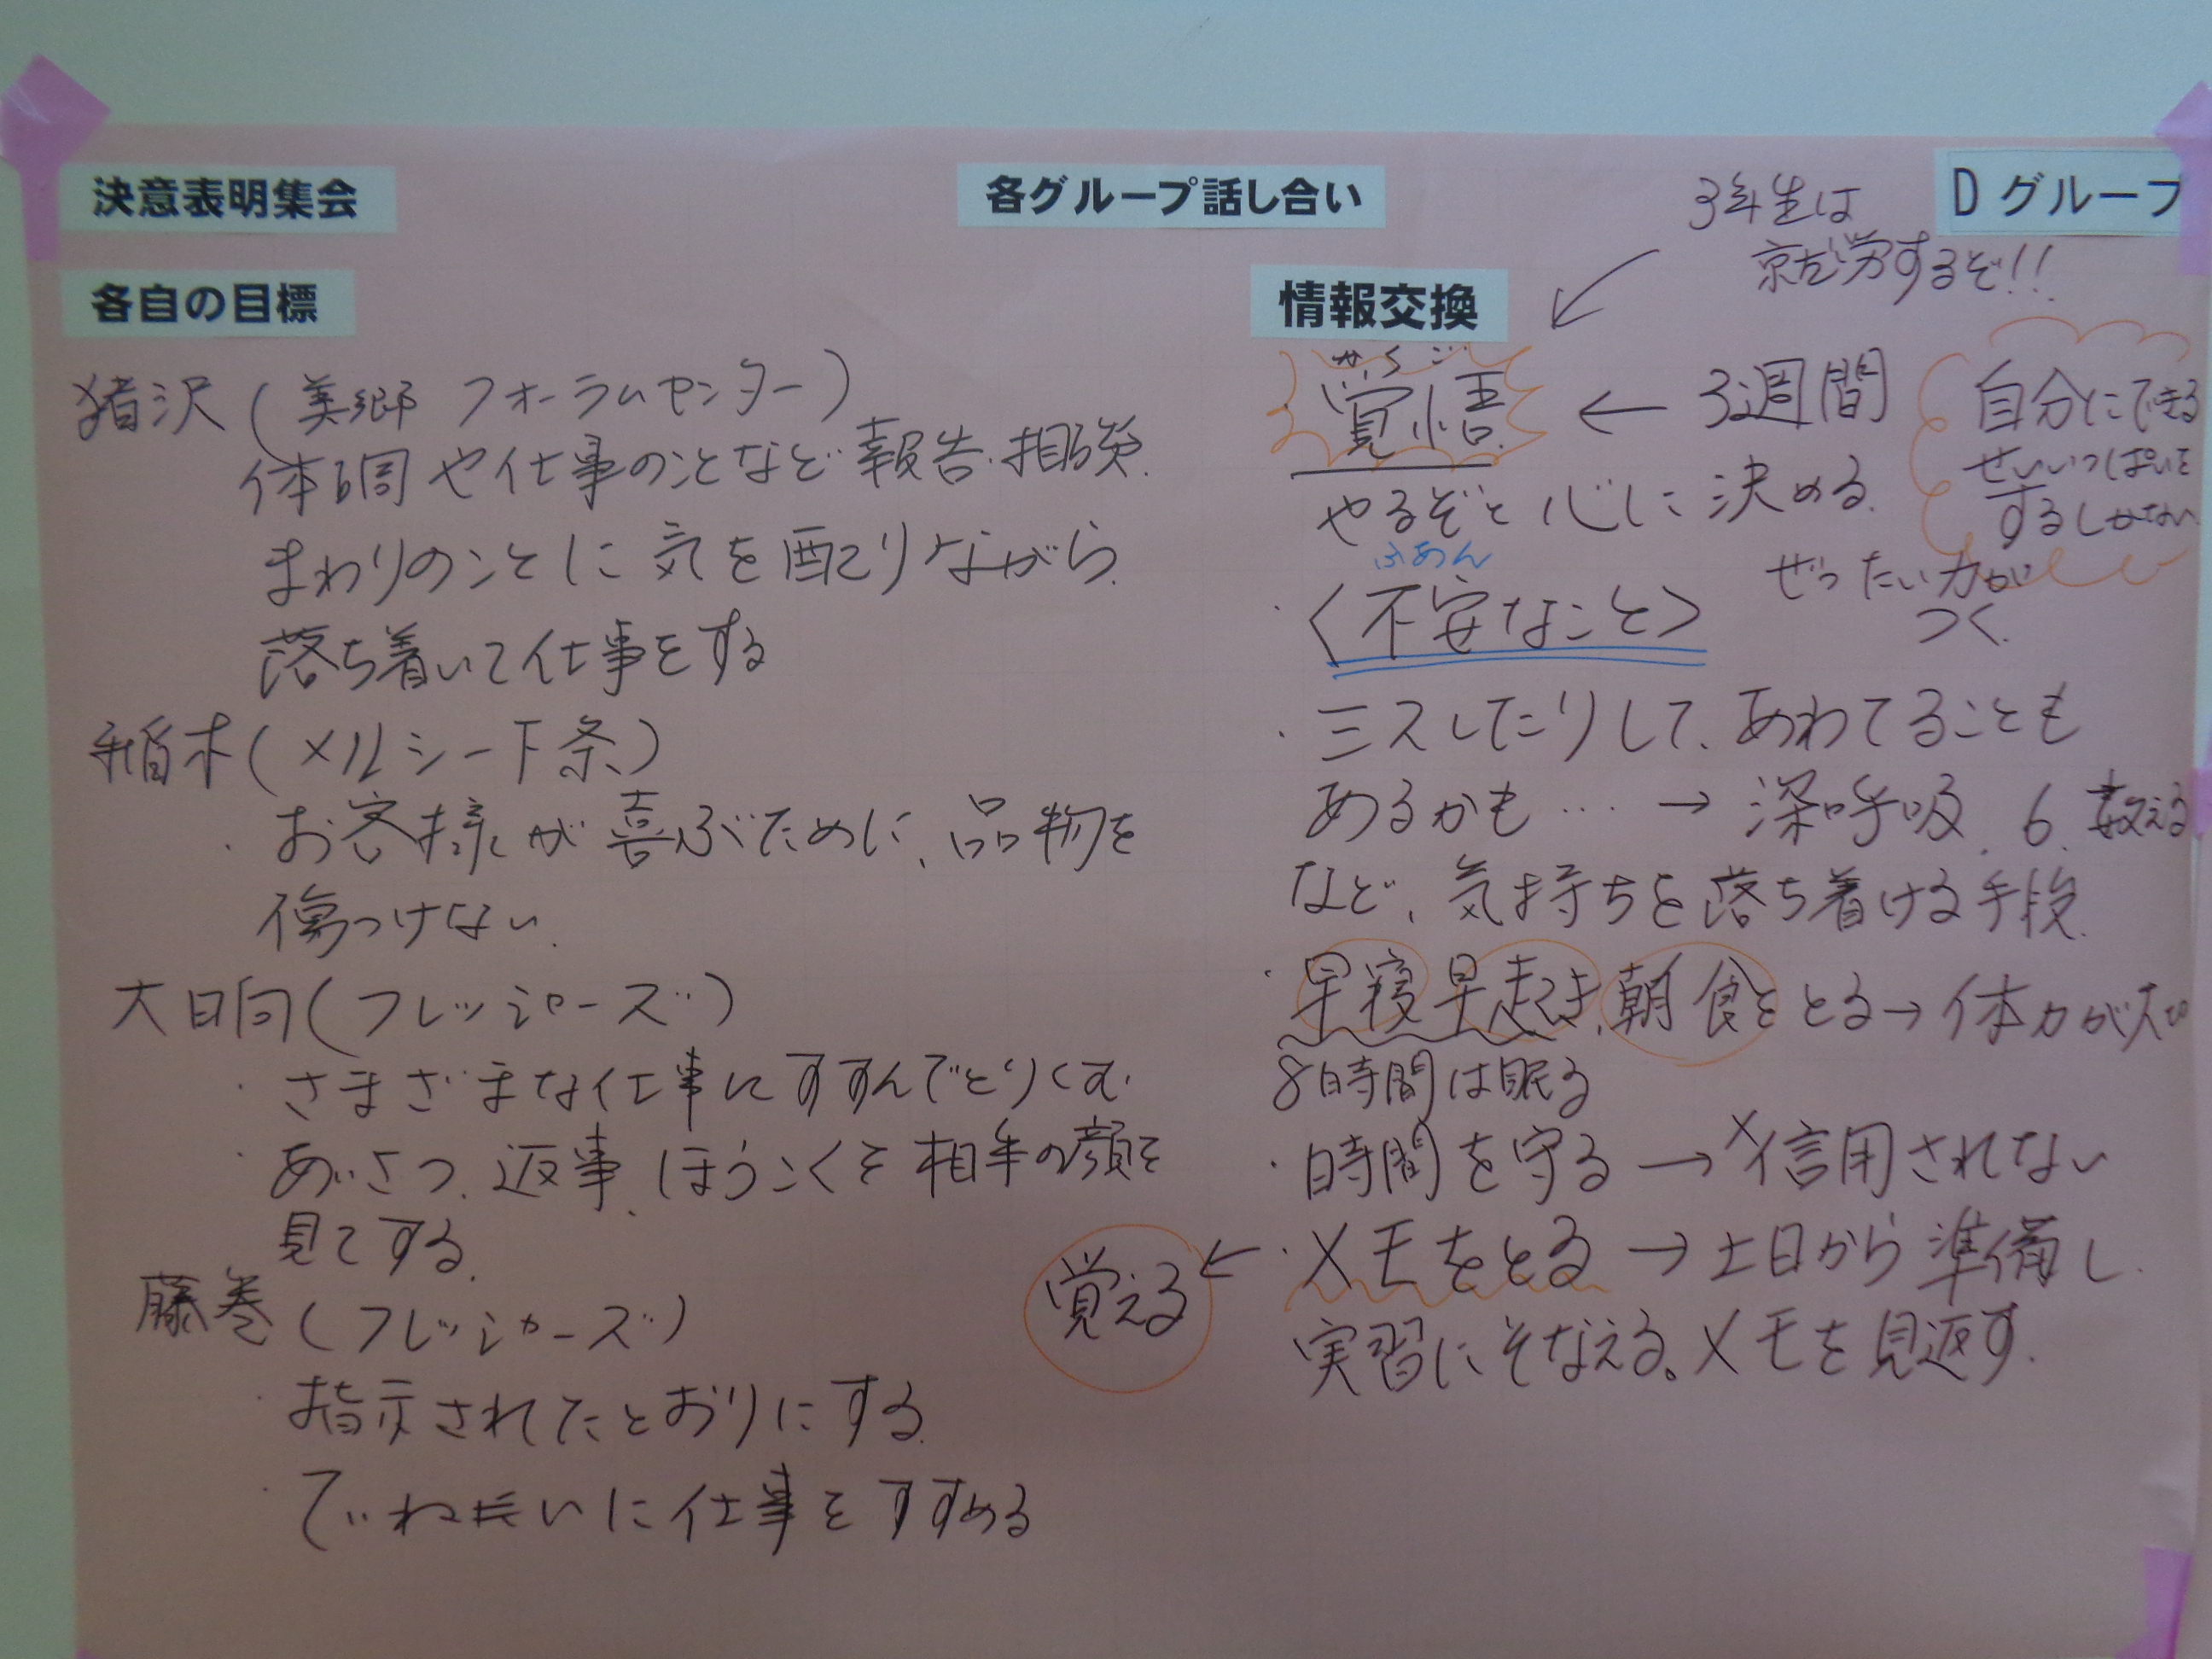 決意表明集会
各グループ話し合い
Dグループ
各自の目標
猪沢(美郷 フォーラムセンター)
体調や仕事のことなど報告.相談.
まわりのことに気を配りながら.
落ち着いて仕事をする
稲木(メルシー下条)
・お客様が喜ぶために、品物を
傷つけない.
大日向(フレッシャーズ)
・さまざまな仕事にすすんでとりくむ.
・あいさつ、返事、ほうこくを相手の顔を
見てする.
藤巻(フレッシャーズ)
・指示されたとおりにする.
・ていねいに仕事をすすめる
情報交換
3年生は
就労するぞ!!
かくご
覚悟 ← 3週間
やるぞと心に決める.
自分にできる
せいいっぱいを
するしかない
ぜったい力が
つく.
ふあん
・〈不安なこと〉
・ミスしたりして、あわてることも
あるかも… → 深呼吸.6.数える
など、気持ちを落ち着ける手段.
・早寝早起き、朝食をとる→体力が大切
8時間は眠る
・時間を守る → ×信用されない
覚える ← ・メモをとる → 土日から準備し.
実習にそなえる。メモを見返す.